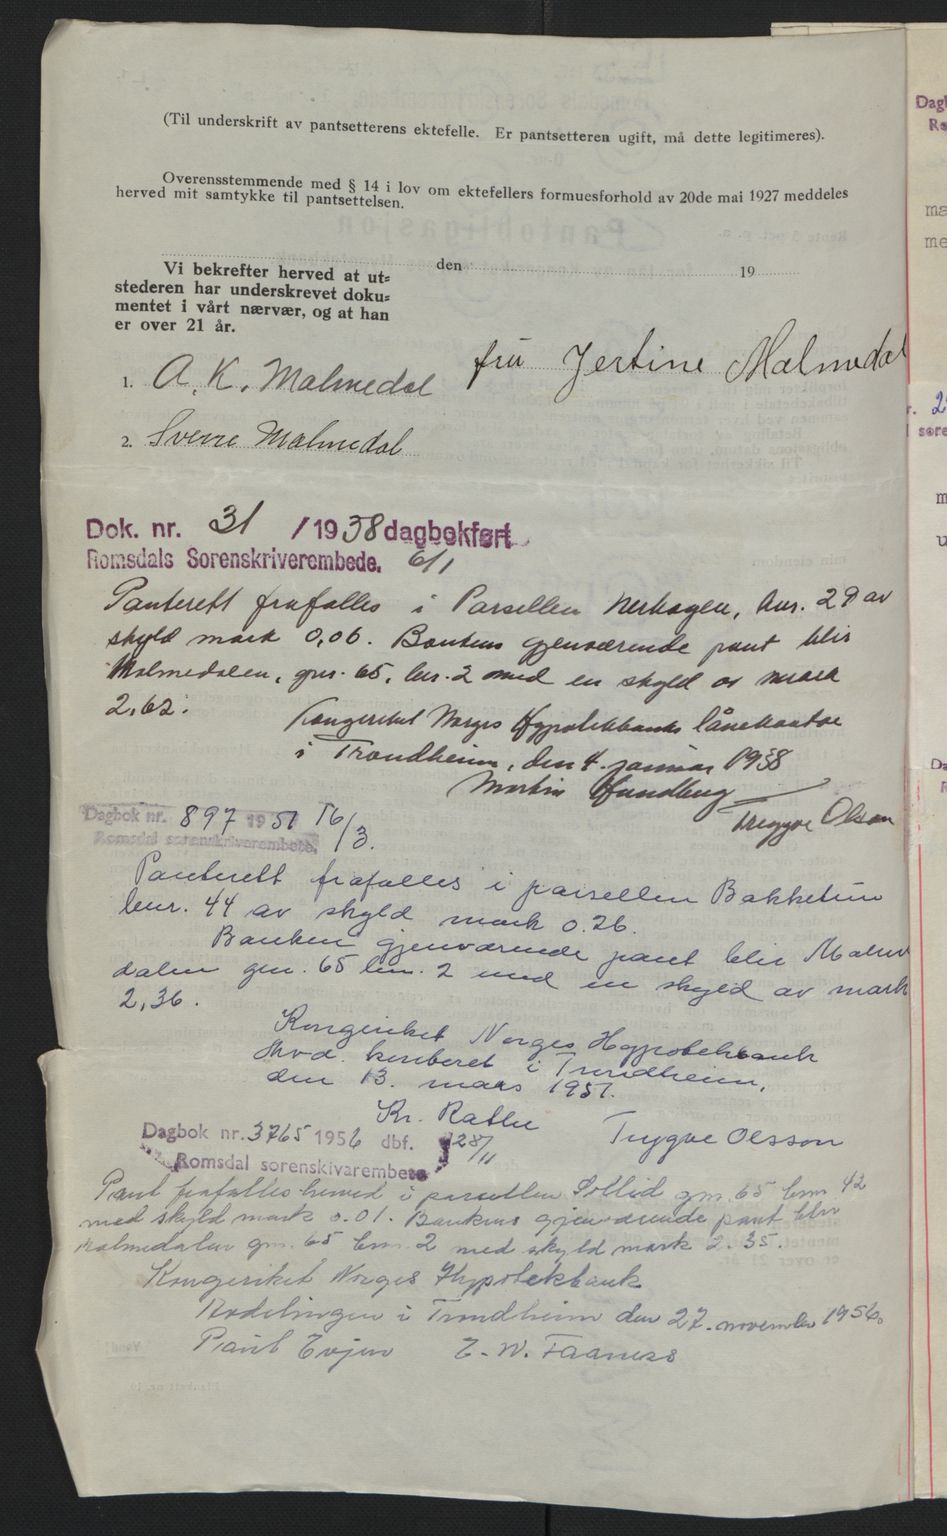 (Til underskrift av pantsetterens ektefelle. Er pantsetteren ugift, må dette legitimeres).
Overensstemmende med § 14 i lov om ektefellers formuesforhold av 20de mai 1927 meddeles
herved mit samtykke til pantsettelsen.
den 19
Vi bekrefter herved at ut-
stederen har underskrevet doku-
mentet i vårt nærvær, og at han
er over 21 år.
fru Jertine Malmedal
1. A. K. Malmedal
2. Sverre Malmedal
Dok. nr. 31 /1938 dagbokført
Romsdals Sorenskriverembede. 6/1
Panterett frafalles i Parsellen Nerhagen, bnr. 29 av
skyld mark 0,06. Bankens gjenværende pant blir
Malmedalen, gnr. 65, bnr. 2 med en skyld av mark
2,62.
Kongeriket Norges Hypotekbanks lånekontor
i Trondheim, den 4. januar 1938
Martin
Trygve Olsson
Dagbok nr. 897 1951 16/3.
Romsdal sorenskriverembete.
Panterett frafalles i parsellen Bakketun
bnr. 44 av skyld mark 0.26.
Banken gjenværende pant blir Malme
dalen gnr. 65 bnr. 2 med en skyld av mark
2,36.
Kongeriket Norges Hypotekbank
Avd. kontoret i Trondheim,
den 13. mars 1951.
Kr. Ratbu Trygve Olsson
Dagbok nr. 3765 1956 dbf. 28/11
Romsdal sorenskrivarembete
Pant frafalles herved i parsellen Sollid gnr. 65 bnr 42
med skyld mark 0.01. Bankens gjenværende pant blir
Malmedalen gnr. 65 bnr. 2 med skyld mark 2.35.
Kongeriket Norges Hypotekbank
Avdelingen i Trondheim den 27. november 1956.
Paul Evjen E. W. Faaness